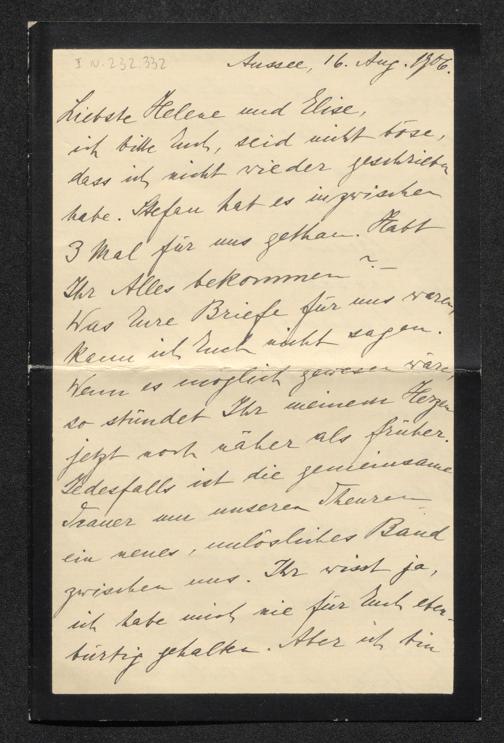 I N. 232.332
Aussee, 16. Aug. 1906.
Liebste Helene und Elise,
ich bitte Euch, seid nicht böse,
dass ich nicht wieder geschrieben
habe. Stefan hat es inzwischen
3 Mal für uns gethan. Habt
Ihr Alles bekommen? –
Was Eure Briefe für uns waren,
kann ich Euch nicht sagen.
Wenn es möglich gewesen wäre,
so stündet Ihr meinem Herzen
jetzt noch näher als früher.
Jedesfalls ist die gemeinsame
Trauer um unseren Theuren
ein neues, unlösliches Band
zwischen uns. Ihr wisst ja,
ich habe mich nie für Euch eben-
bürtig gehalten. Aber ich bin